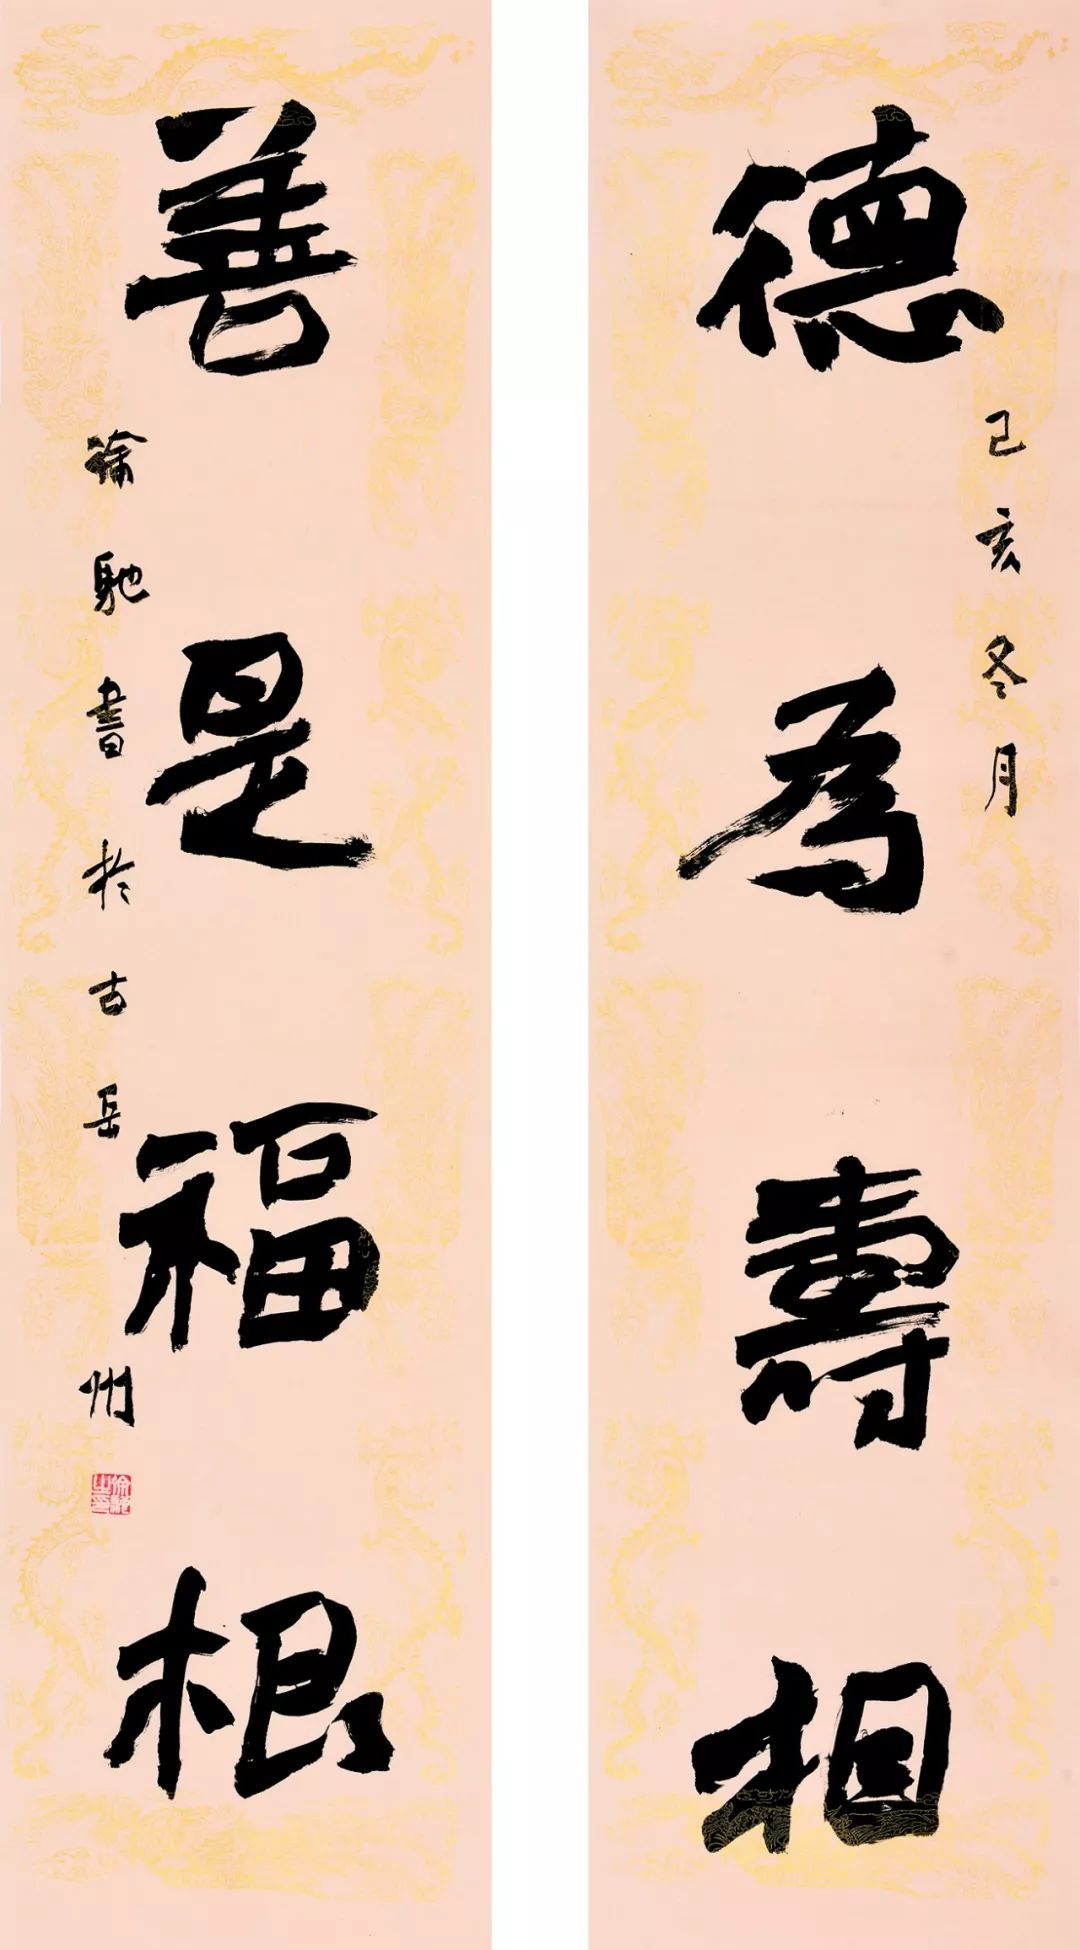 德為壽相
己亥冬月
善是福根
徐馳書於古岳州
徐馳之印